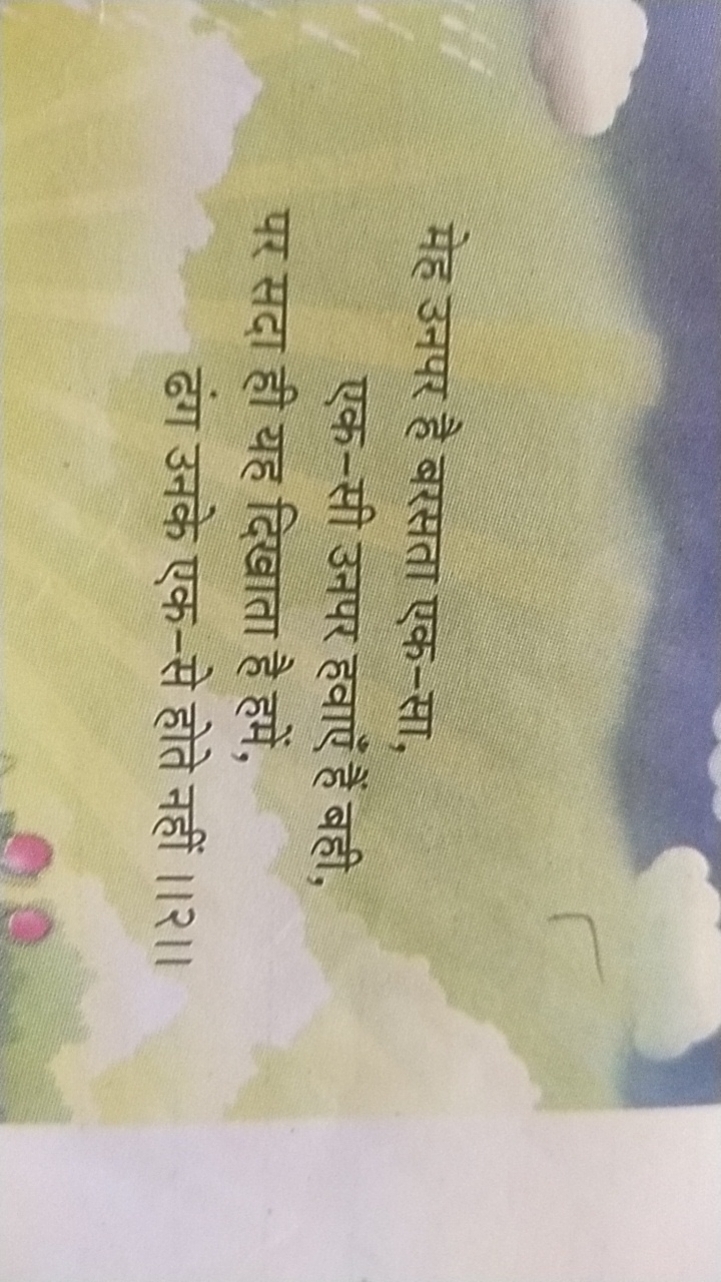 मेह उनपर है बरसता एक-सा,
एक-सी उनपर हवाएँ हैं बही,
पर सदा ही यह दिखाता है हमें,
ढंग उनके एक-से होते नहीं ।।२।।